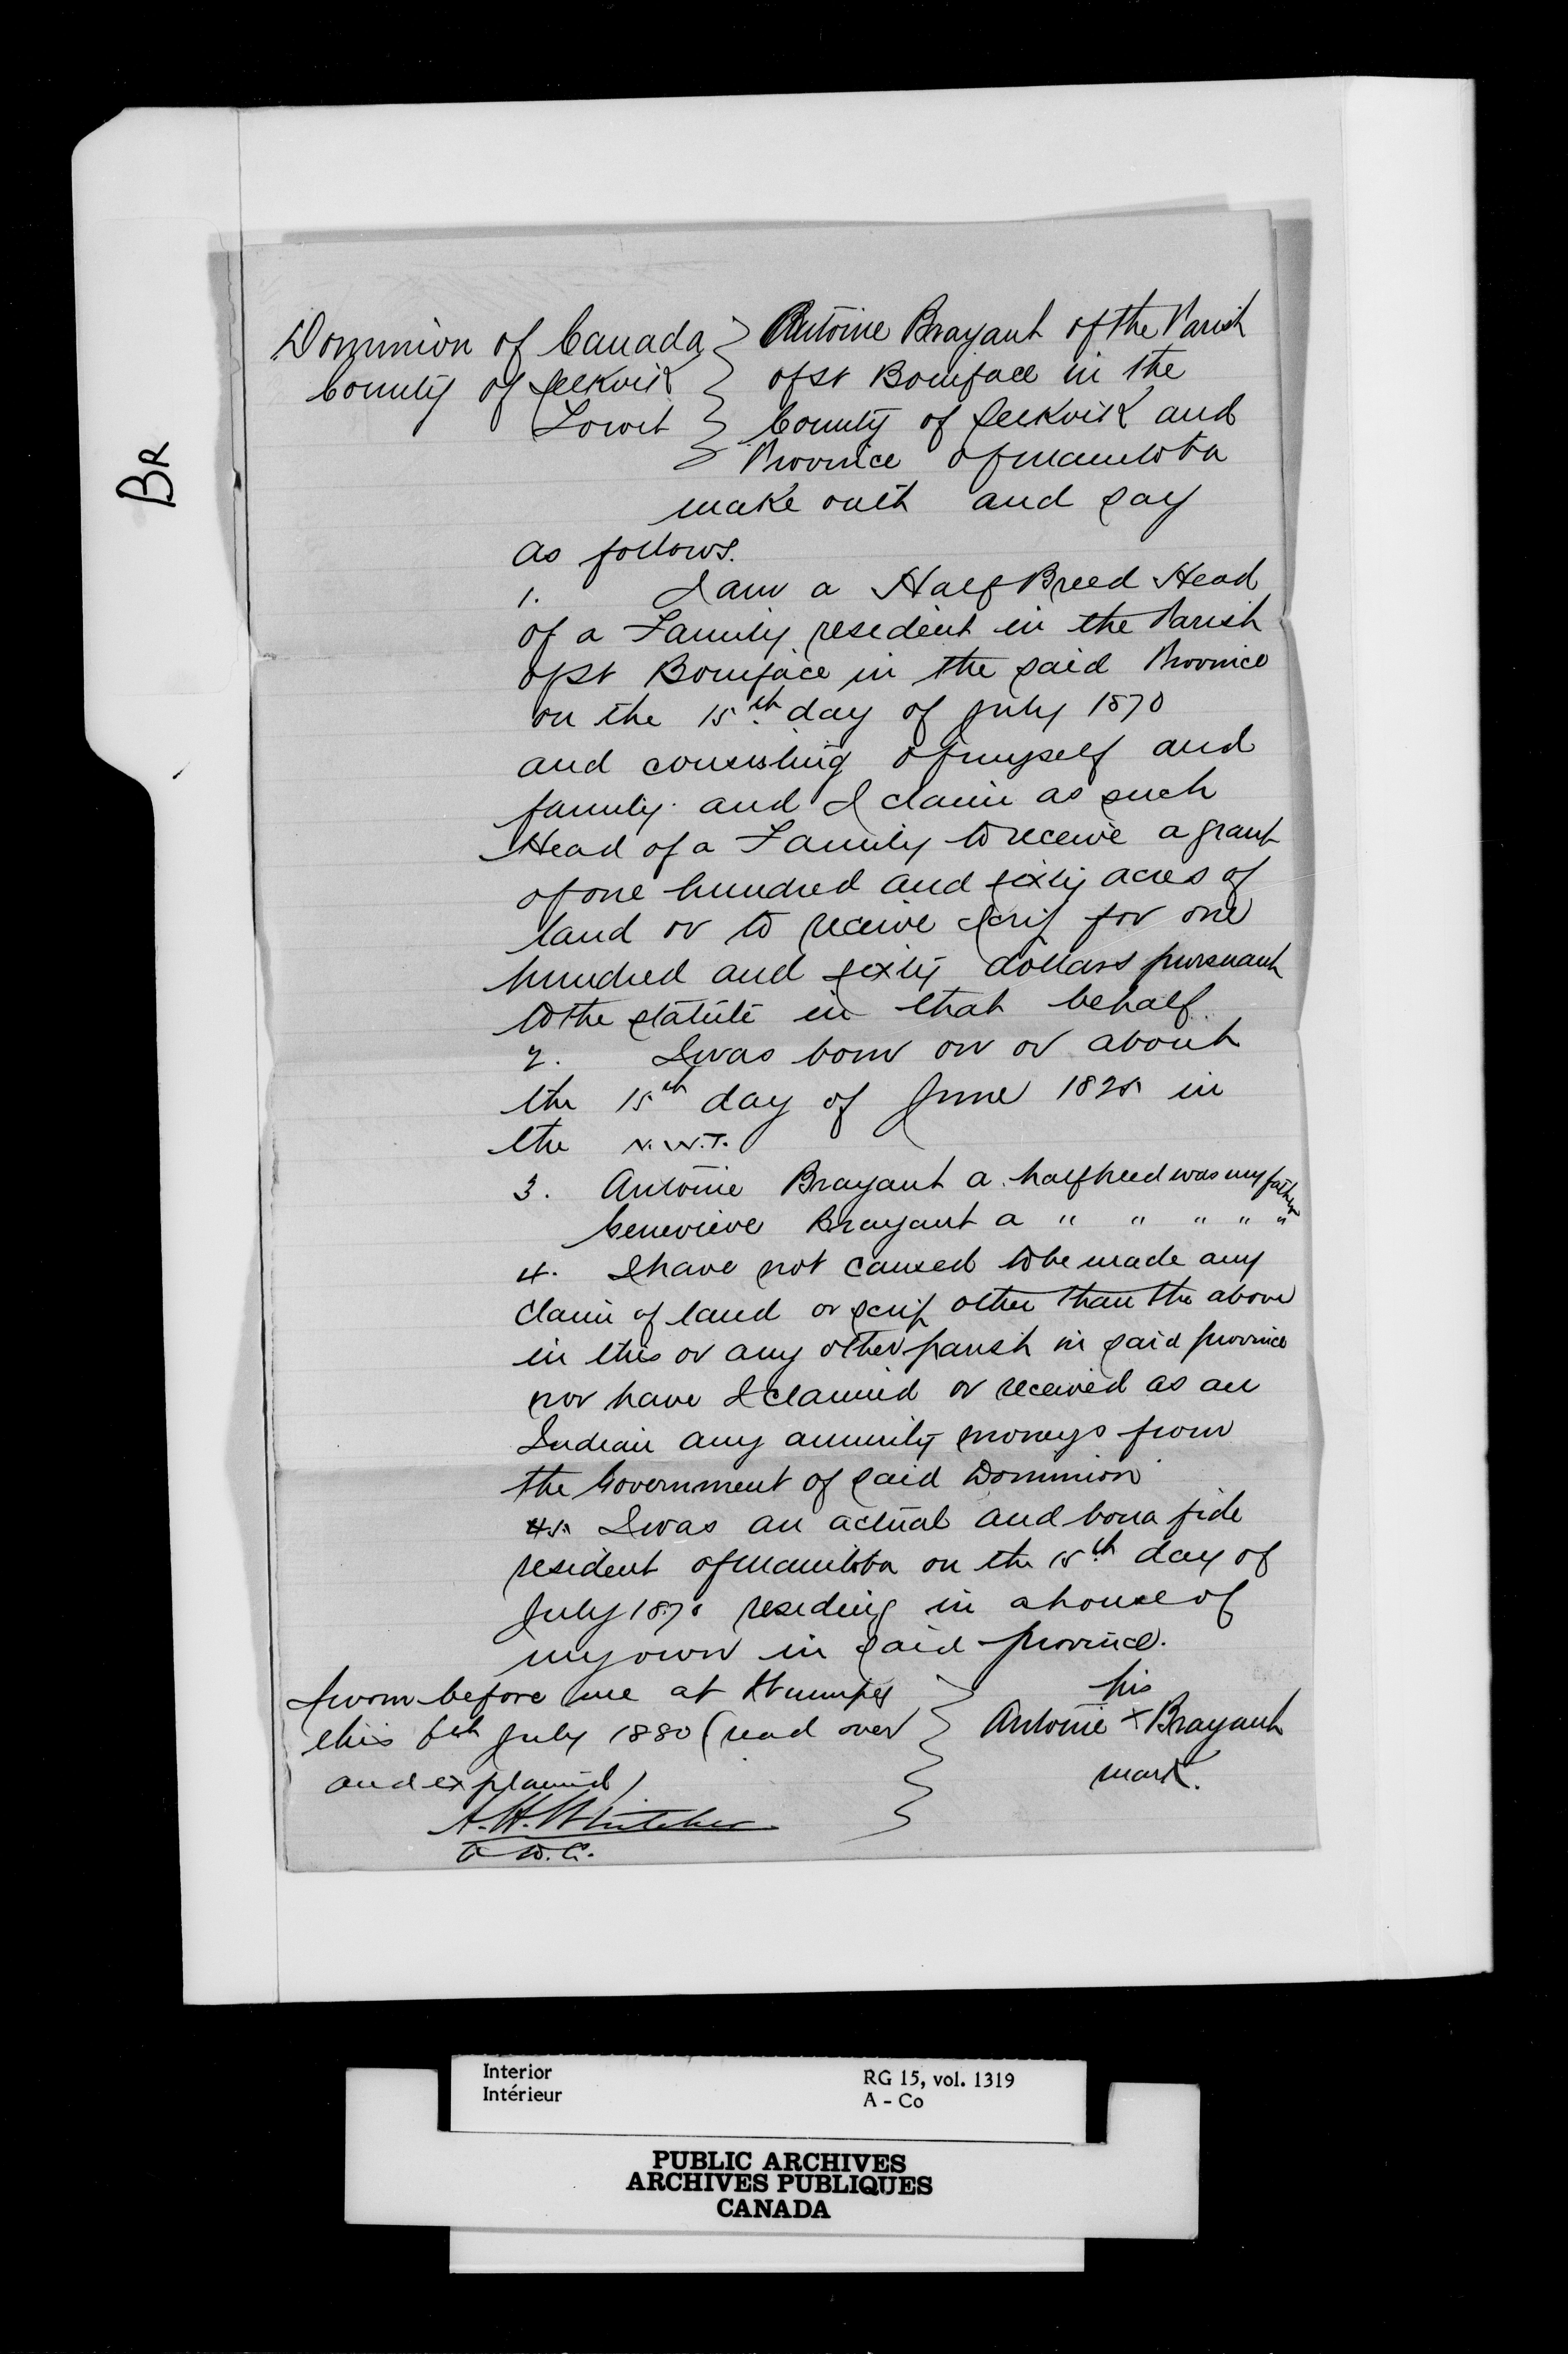 BR
Dominion of Canada
County of Selkirk
To wit
Antoine Brayant of the Parish
of St Boniface in the
County of Selkirk and
Province of Manitoba
make oath and say
as follows.
1. I am a Half Breed Head
of a Family resident in the Parish
of St Boniface in the said Province
on the 15th day of July 1870
and consisting of myself and
family. and I claim as such
Head of a Family to receive a grant
of one hundred and sixty acres of
land or to receive scrip for one
hundred and sixty dollars pursuant
to the statute in that behalf.
2. I was born on or about
the 15th day of June 1825 in
the N.W.T.
3. Antoine Brayant a halfbreed was my father
Genevieve Brayant a " " " " "
4. I have not caused to be made any
claim of land or scrip other than the above
in this or any other parish in said province
nor have I claimed or received as an
Indian any annuity moneys from
the Government of said Dominion
5. I was an actual and bona fide
resident of Manitoba on the 15th day of
July 1870 residing in a house of
my own in said province.
Sworn before me at Winnipeg
this 6th July 1880 (read over
and explained)
A. H. Whitcher
his
Antoine × Brayant
mark.
Interior
Intérieur
RG 15, vol. 1319
A - Co
PUBLIC ARCHIVES
ARCHIVES PUBLIQUES
CANADA